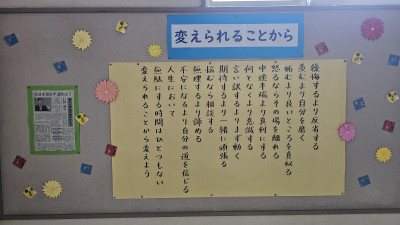 変えられることから
後悔するより反省する
羨むより自分を磨く
妬むより良いところを真似る
怒るならその場を離れる
中途半端より真剣にする
何となくより意識する
言い訳するよりまず動く
期待するより一緒に頑張る
悩むなら相談する
無理するより諦める
不安になるより自分の道を信じる
人生において
無駄にする時間はひとつもない
変えられることから変えよう